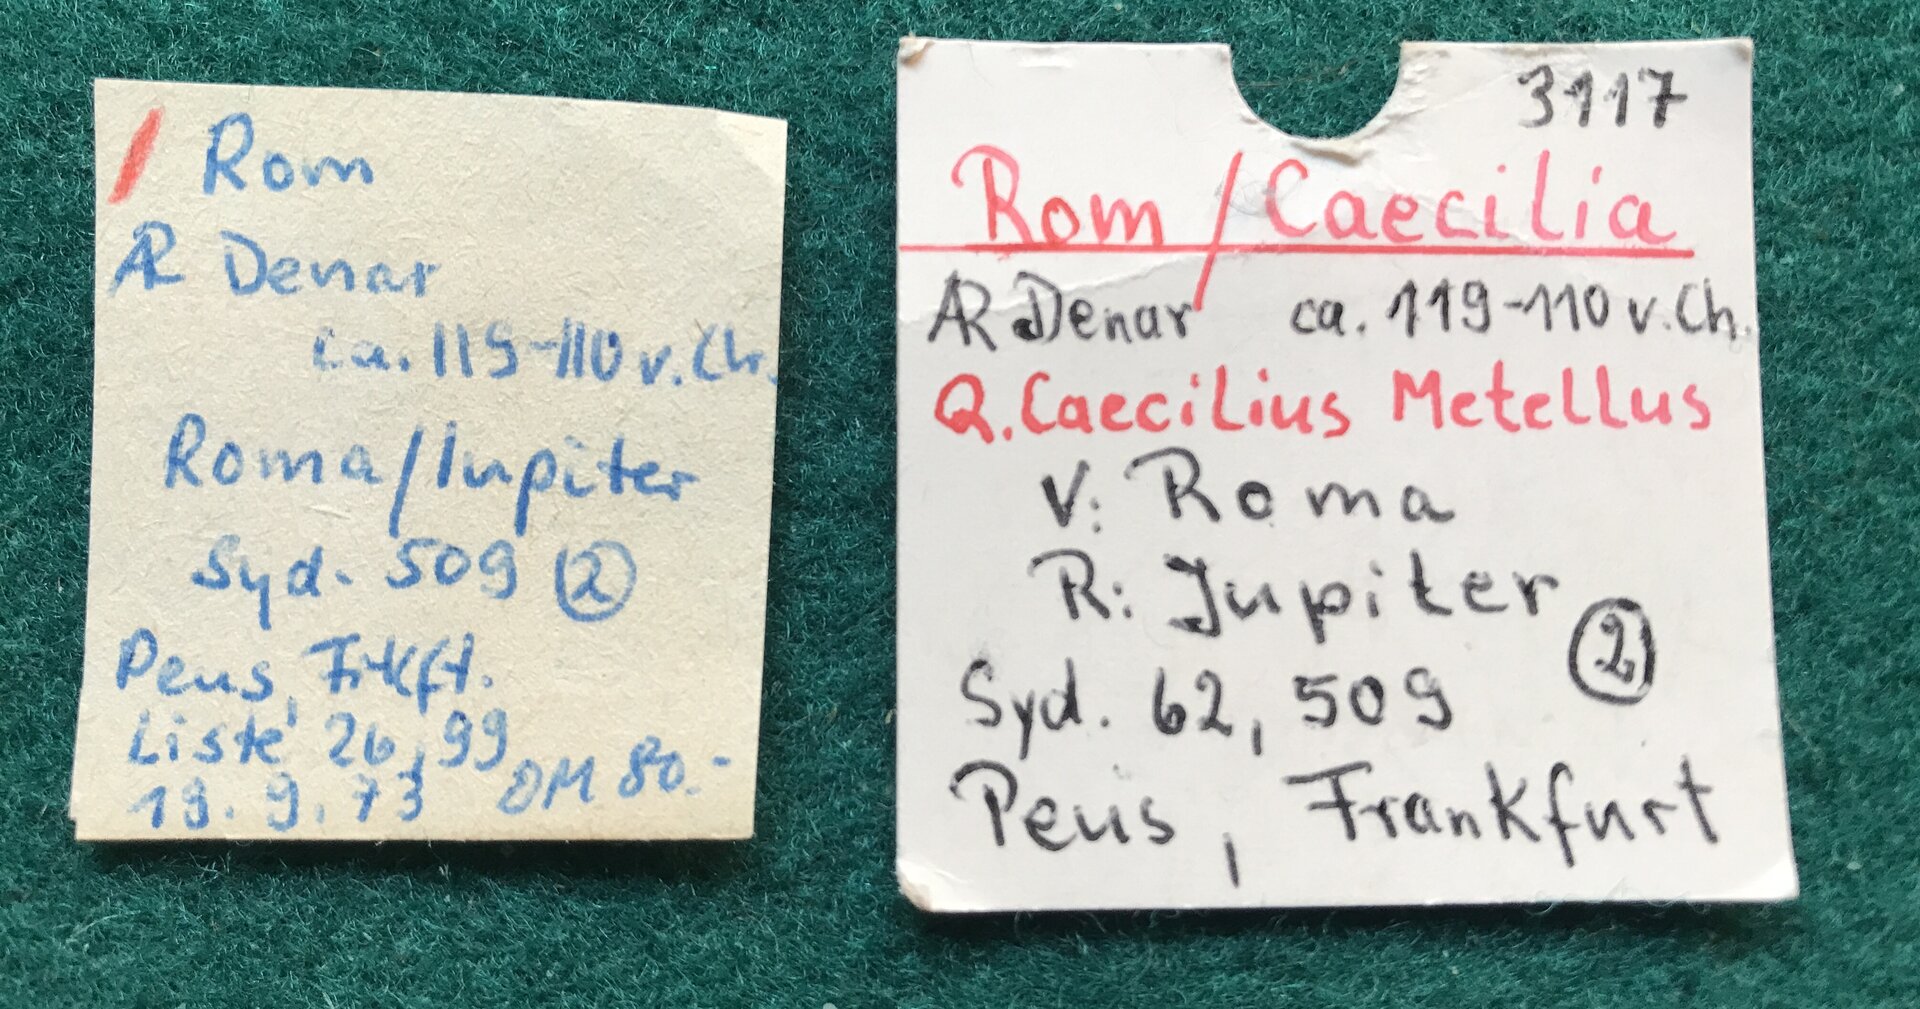 Rom
AR Denar
ca. 119-110 v. Ch.
Roma/Iupiter
Syd. 509 ②
Peus, Frkft.
Liste 26, 99
19.9.73 DM 80.-
3117
Rom/Caecilia
AR Denar ca. 119-110 v. Ch.
Q. Caecilius Metellus
V: Roma
R: Jupiter
②
Syd. 62, 509
Peus, Frankfurt